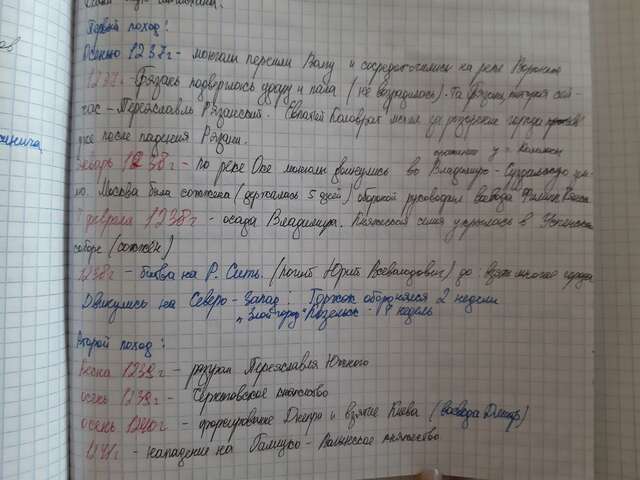 Первый поход:
Осенью 1237г - монголы перешли Волгу и сосредоточились на реке Воронеж
1237г - Рязань подверглась удару и пала (не возродилась). Та Рязань, которая сей-
час - Переяславль Рязанский. Евпатий Коловрат мстил за разорение города
уже после падения Рязани.
сражение у г. Коломны
Январь 1238г - по реке Оке монголы двинулись во Владимиро - Суздальскую
Москва была сожжена (держалась 5 дней) обороной руководил воевода Филипп
февраля 1238г - осада Владимира. Княжеская семья укрылась в Успенском
соборе (сожжен)
1238г - битва на р. Сить. (погиб Юрий Всеволодович) до: взяли многие города
Двинулись на Северо - Запад: Торжок оборонялся 2 недели
"Злой город" Козельск - 7 недель
Второй поход:
Весна 1239г - разгром Переяславля Южного
осень 1239г - Черниговское княжество
осень 1240г - форсирование Днепра и взятие Киева (воевода Дмитр)
1241г - нападение на Галицко - Волынское княжество